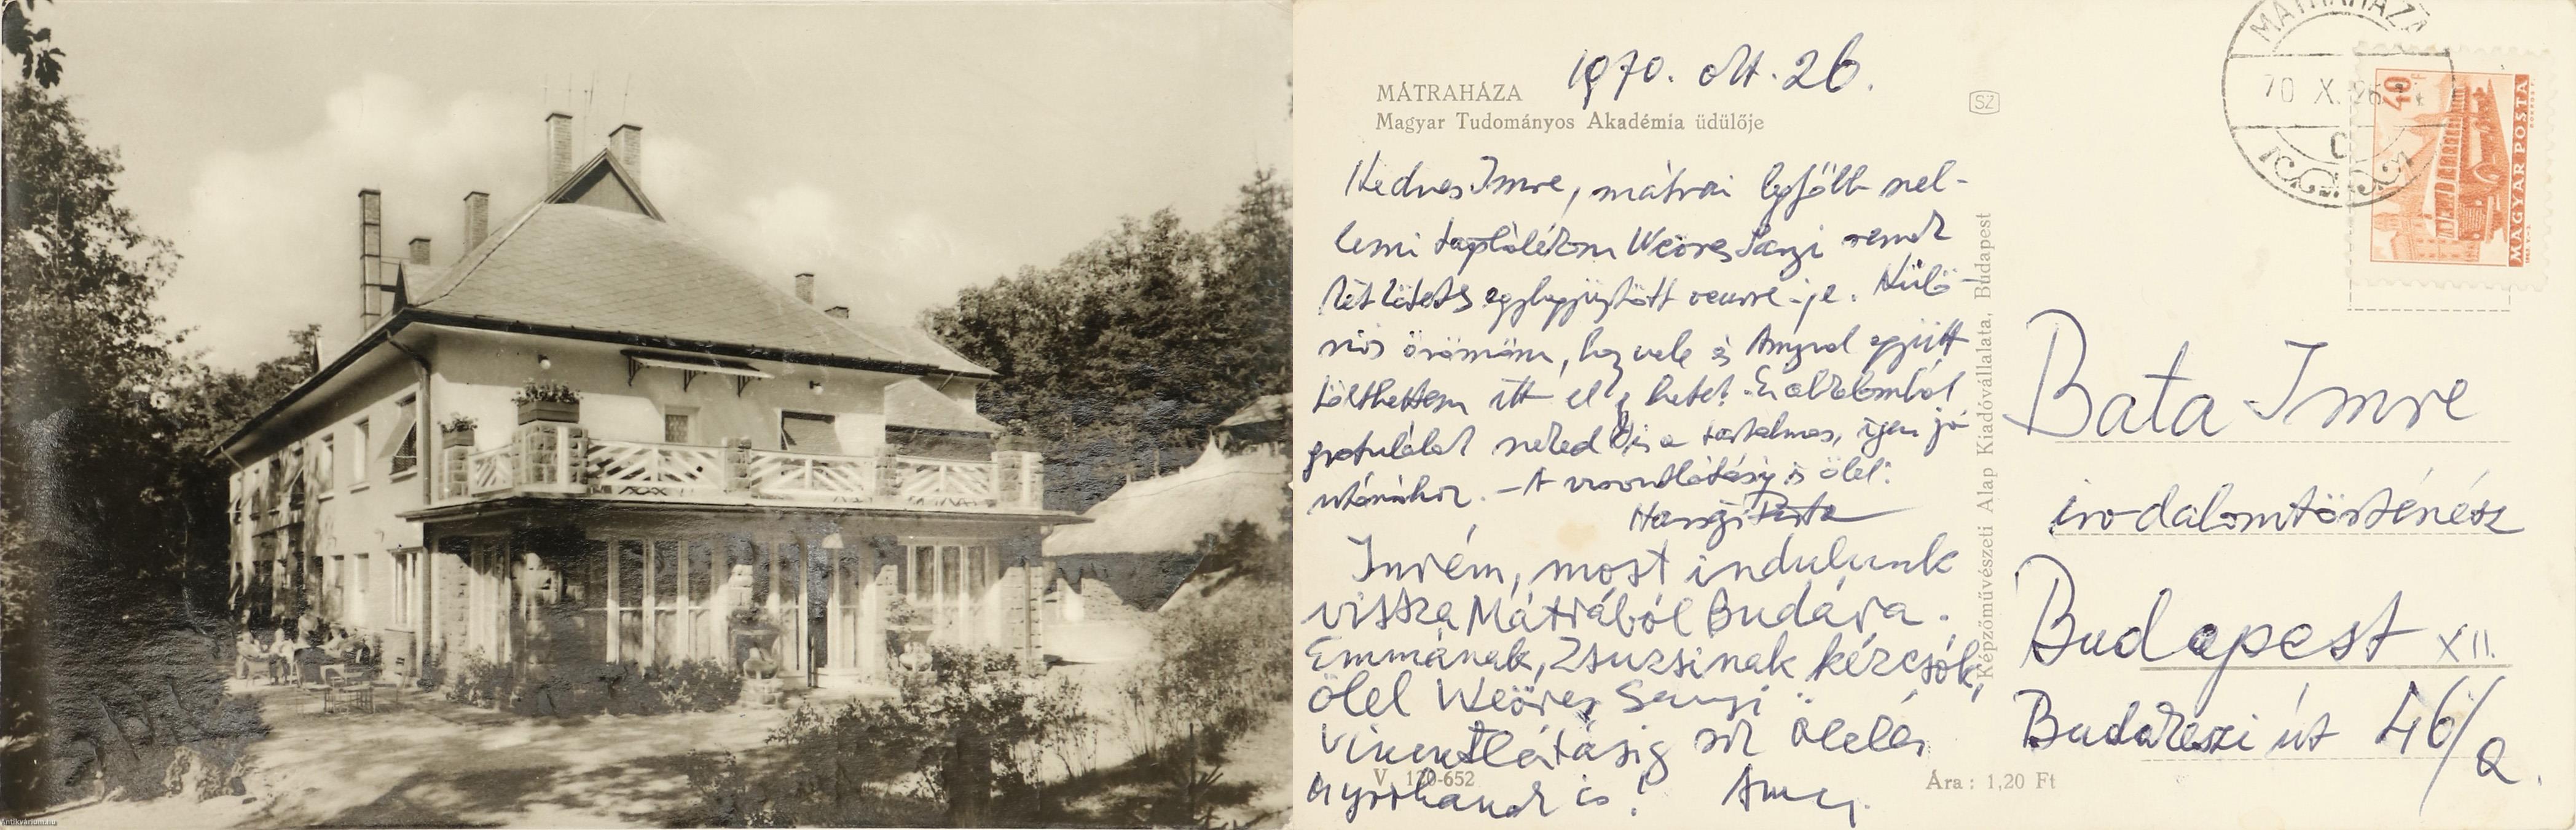 Antikvárium.hu
MÁTRAHÁZA
1970. okt. 26.
Magyar Tudományos Akadémia üdülője
Kedves Imre, mátrai legfőbb szel-
lemi táplálékom Weöres Sanyi remek
két kötetes egybegyűjtött oeuvre-je. Külö-
nös örömöm, hogy vele és Amyval együtt
tölthettem itt el hetet. Ez alkalomból
gratulálok neked is a tartalmas, igen jó
utószóhoz. – A viszontlátásig is ölel:
Imrém, most indulunk
vissza Mátrából Budára.
Emmának, Zsuzsinak kézcsók,
ölel Weöres Sanyi
Viszontlátásig sok ölelés
anyósomnak is! Amy.
V. 120-652
Ára: 1,20 Ft
Képzőművészeti Alap Kiadóvállalata, Budapest
SZ
MÁTRAHÁZA
70 X. 26
C
40
MAGYAR POSTA
Bata Imre
irodalomtörténész
Budapest XII.
Budakeszi út 46/a.